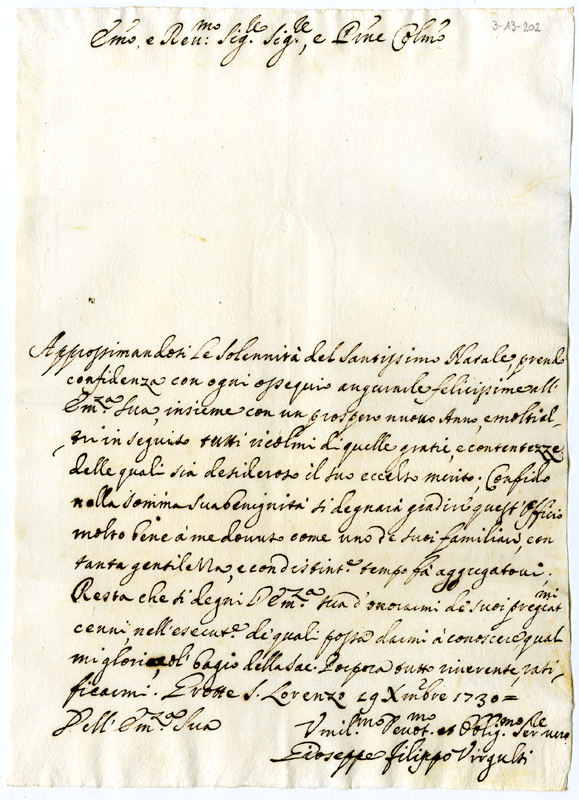 3-13-202
Emo, e Reu:mo Sig.re Sig.re, e Pne Colmo
Approssimandosi le Solennità del Santissimo Natale, prendo
confidenza con ogni ossequio augurarle felicissime all'
Em.za Sua, insieme con un prospero nuovo Anno, e molti al,
tri in seguito tutti ricolmi di quelle gratie, e contentezze,
delle quali sia desideroso il suo eccelso merito; Confido
nella somma sua benignità si degnarà gradire quest'officio
molto bene à me dovuto come uno de suoi familiari, con
tanta gentilezza, e condistint.e tempo fà aggregatovi;
Resta che si degni l'Em.za Sua d'onorarmi de suoi pregiatmi
cenni nell'esecut.e de quali possa darmi à conoscere, qual
mi glorio, al bagio della Sac. Porpora tutto riverente rati,
ficarmi. Grotte S. Lorenzo 19 Xmbre 1730=
Dell'Em.za Sua
Vmil.mo Devot.mo et Oblig.mo Ser.re vero
Gioseppe Filippo Virgulti